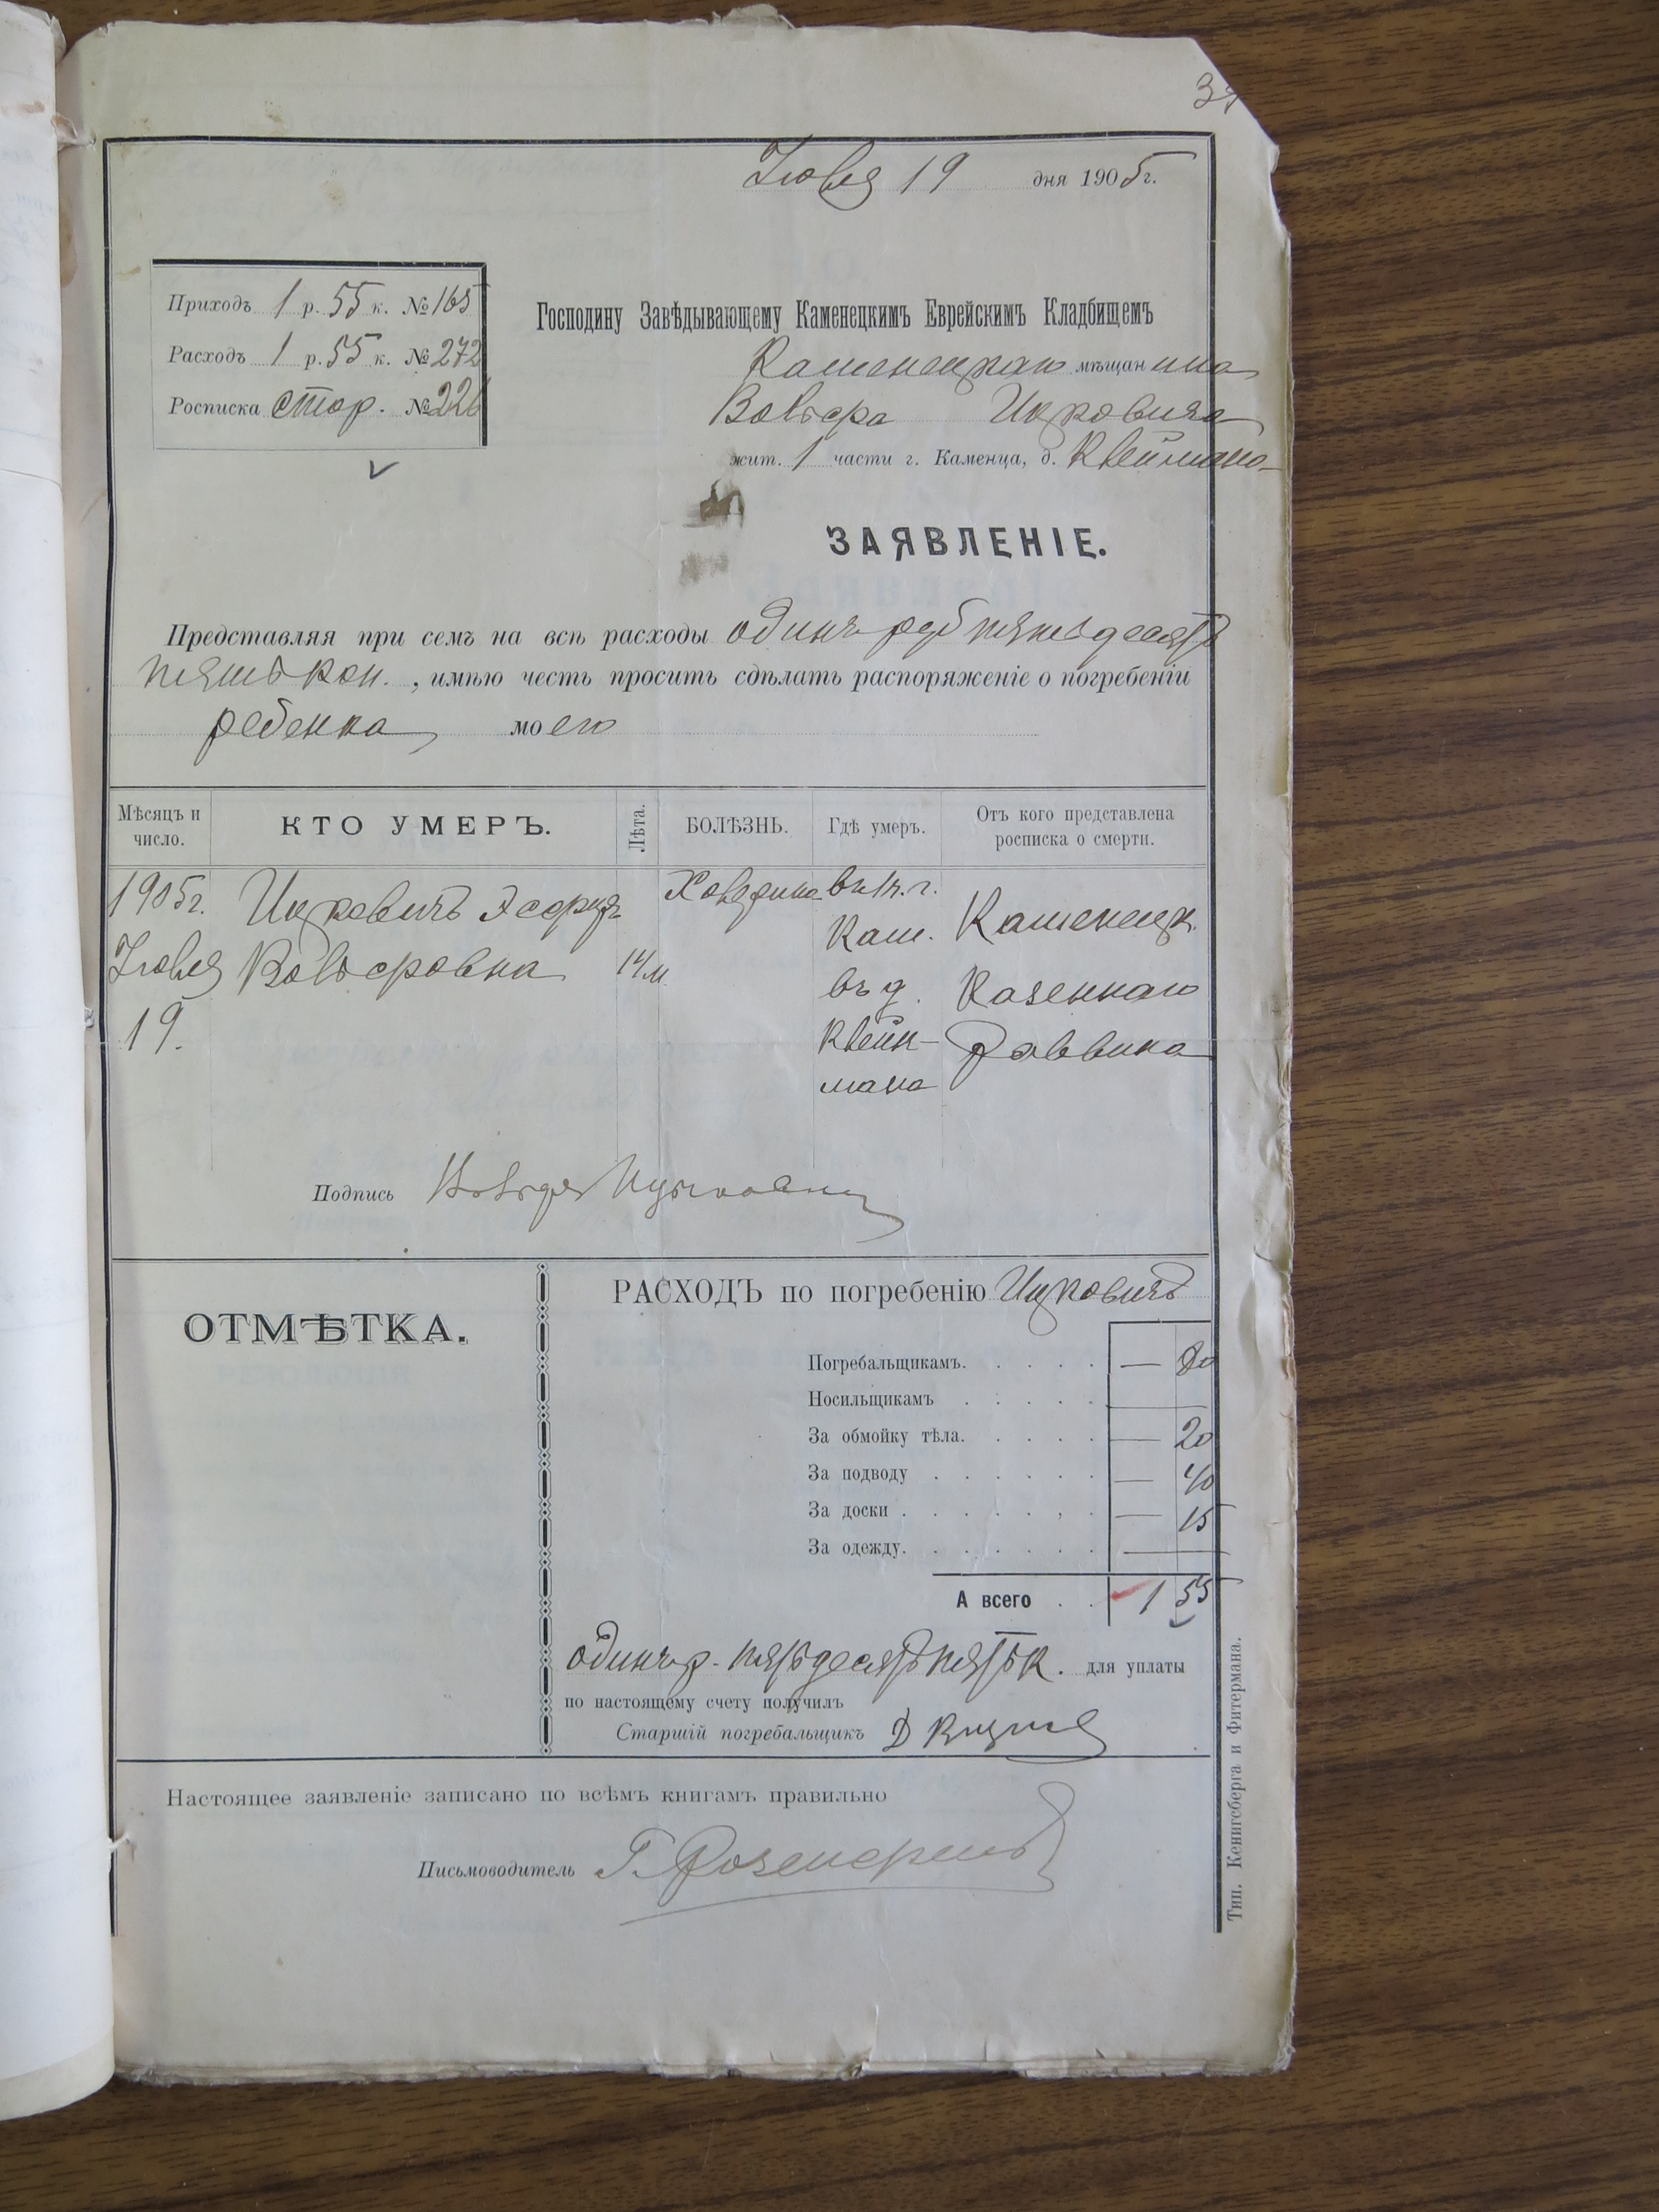 Іюля 19 дня 1905 г.
Приходъ 1 р. 55 к. № 165
Расходъ 1 р. 55 к. № 272
Росписка стор. № 226
Господину Завѣдывающему Каменецкимъ Еврейскимъ Кладбищемъ
Каменецкаго мѣщанина
Вольфа Ицковича
жит. 1 части г. Каменца, д. Клеймана
ЗАЯВЛЕНІЕ.
Представляя при семъ на всѣ расходы одинъ руб пятьдесятъ
пять коп. , имѣю честь просить сдѣлать распоряженіе о погребеніи
ребенка моего
Мѣсяцъ и число. КТО УМЕРЪ. Лѣта. БОЛѢЗНЬ. Гдѣ умеръ. Отъ кого представлена росписка о смерти.
1905 г. Ицковичъ въ 1 ч. г.
Кам. Каменецк.
Іюля Вольфовна 14 м.
въ д. Казеннаго
19. Клейн-
мана Раввина
Подпись Вольфъ Ицковичъ
ОТМѢТКА.
РАСХОДЪ по погребенію Ицковичъ
Погребальщикамъ. — 80
Носильщикамъ
За обмойку тѣла. — 20
За подводу — 40
За доски — 15
За одежду. —
А всего 1 55
одинъ р. пятьдесятъ пять к. для уплаты
по настоящему счету получилъ
Старшій погребальщикъ Д
Настоящее заявленіе записано по всѣмъ книгамъ правильно
Письмоводитель Г.
Тип. Кенигсберга и Фитермана.